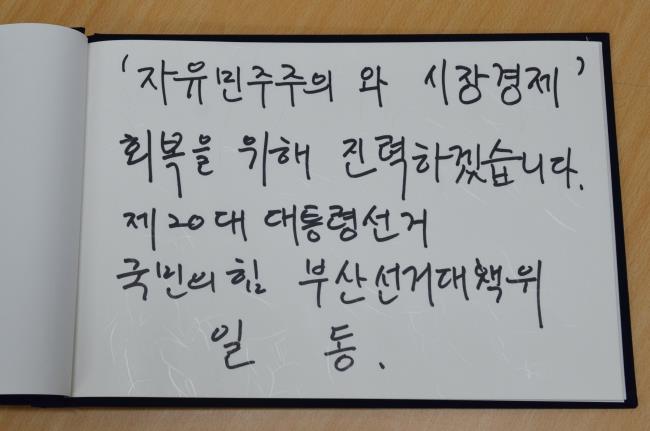 '자유민주주의 와 시장경제'
회복을 위해 진력하겠습니다.
제20대 대통령선거
국민의힘 부산선거대책위
일 동.